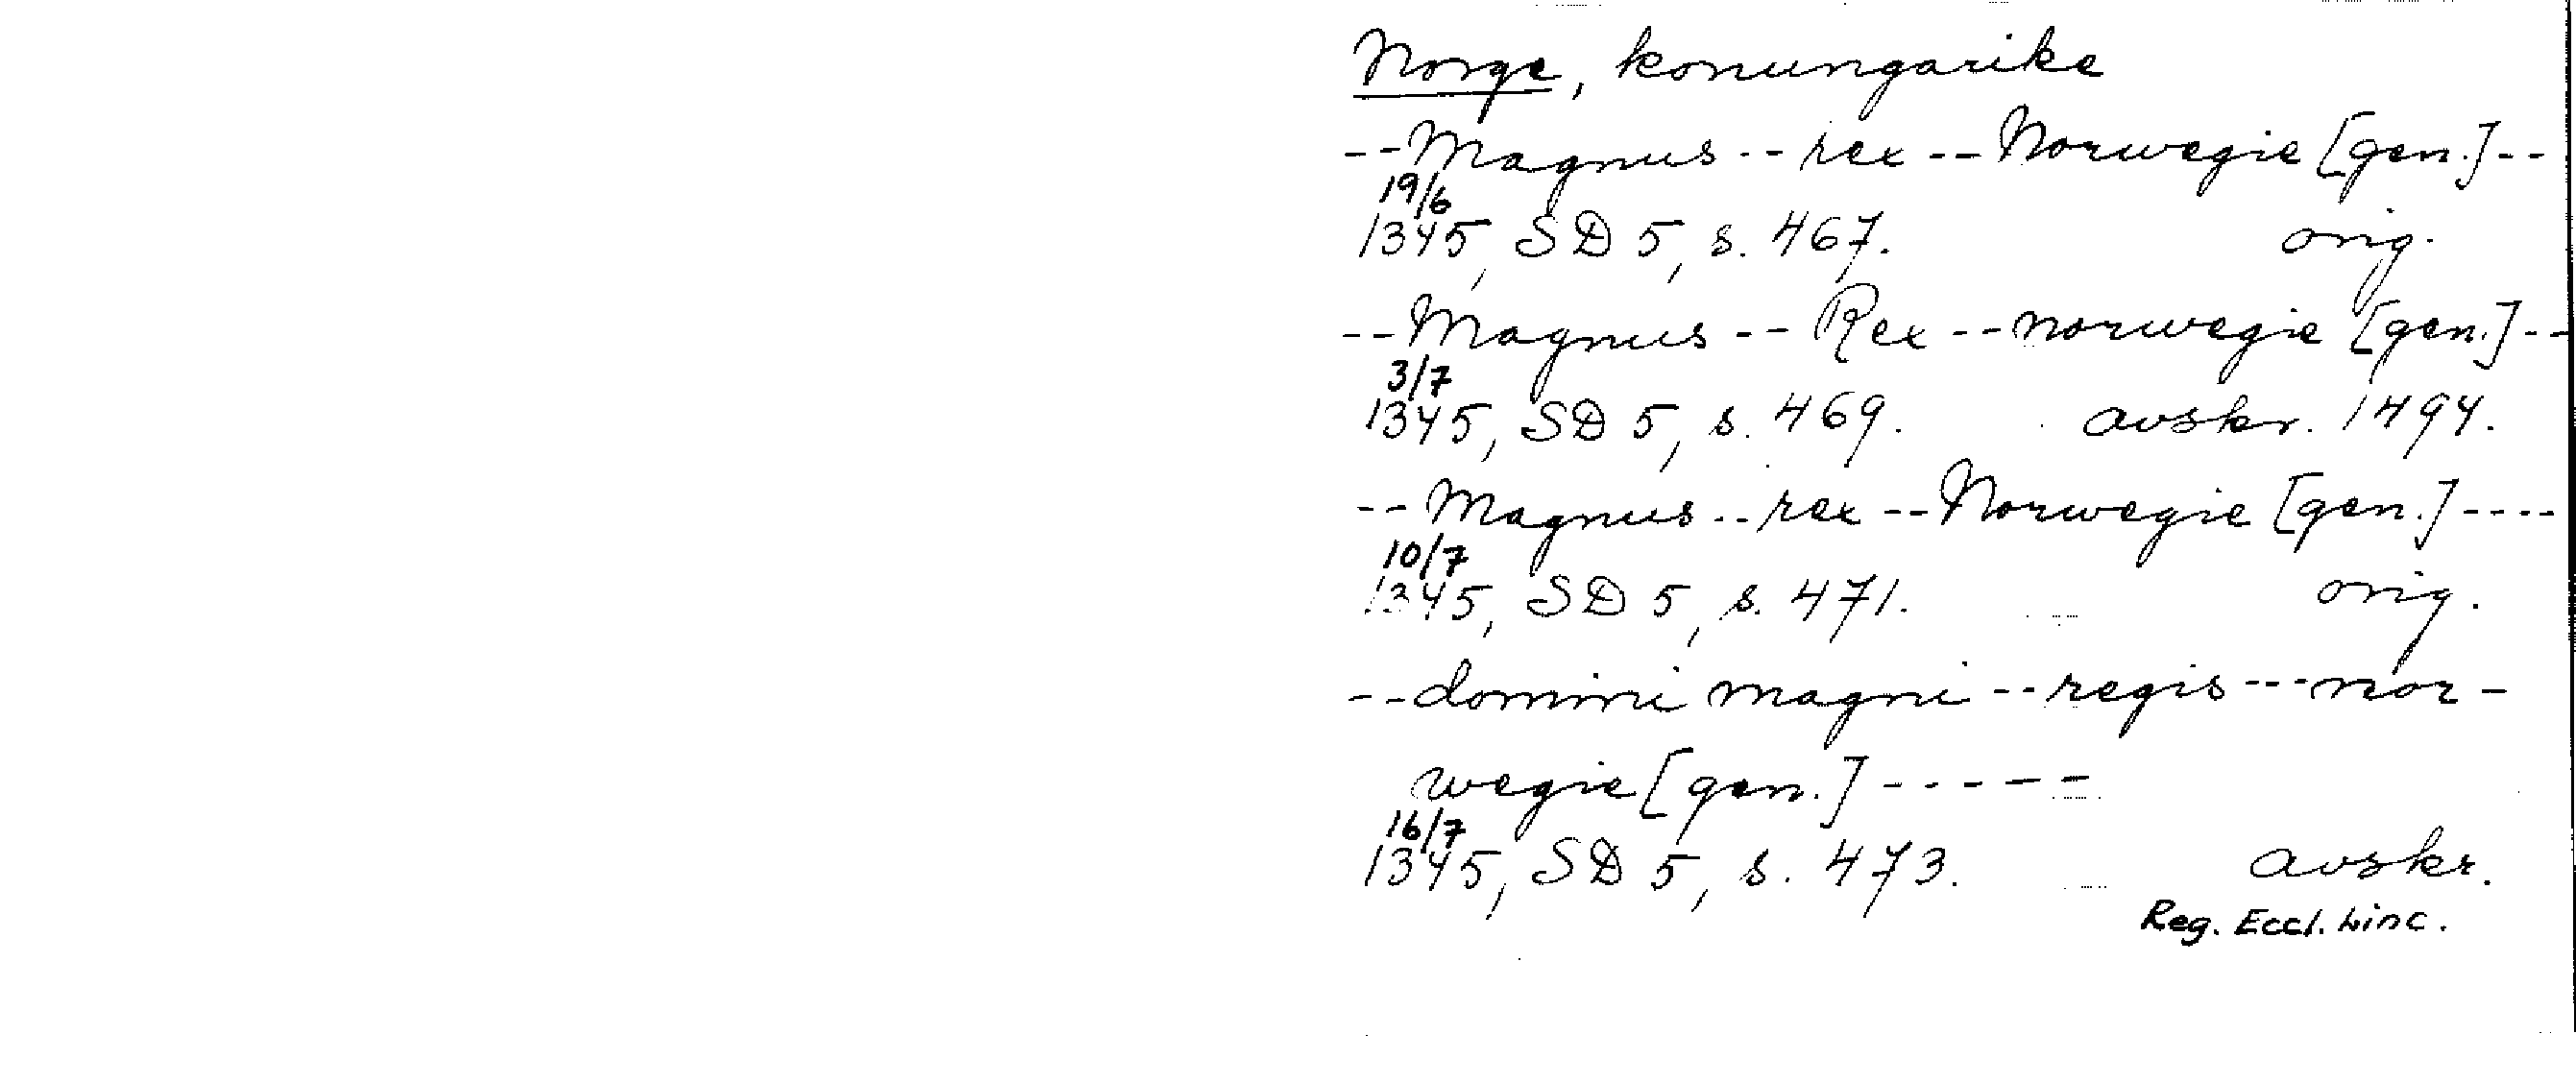 Norge, konungarike
--Magnus--rex--Norwegie [gen.]--
19/6
1345, SD 5, s. 467. orig.
--Magnus--Rex--norwegie [gen.]--
3/7
1345, SD 5, s. 469. avskr. 1494.
--Magnus--rex--Norwegie [gen.]----
10/7
1345, SD 5, s. 471. orig.
--domini magni--regis---nor-
wegie [gen.]-----
16/7
1345, SD 5, s. 473. avskr.
Reg. Eccl. Linc.